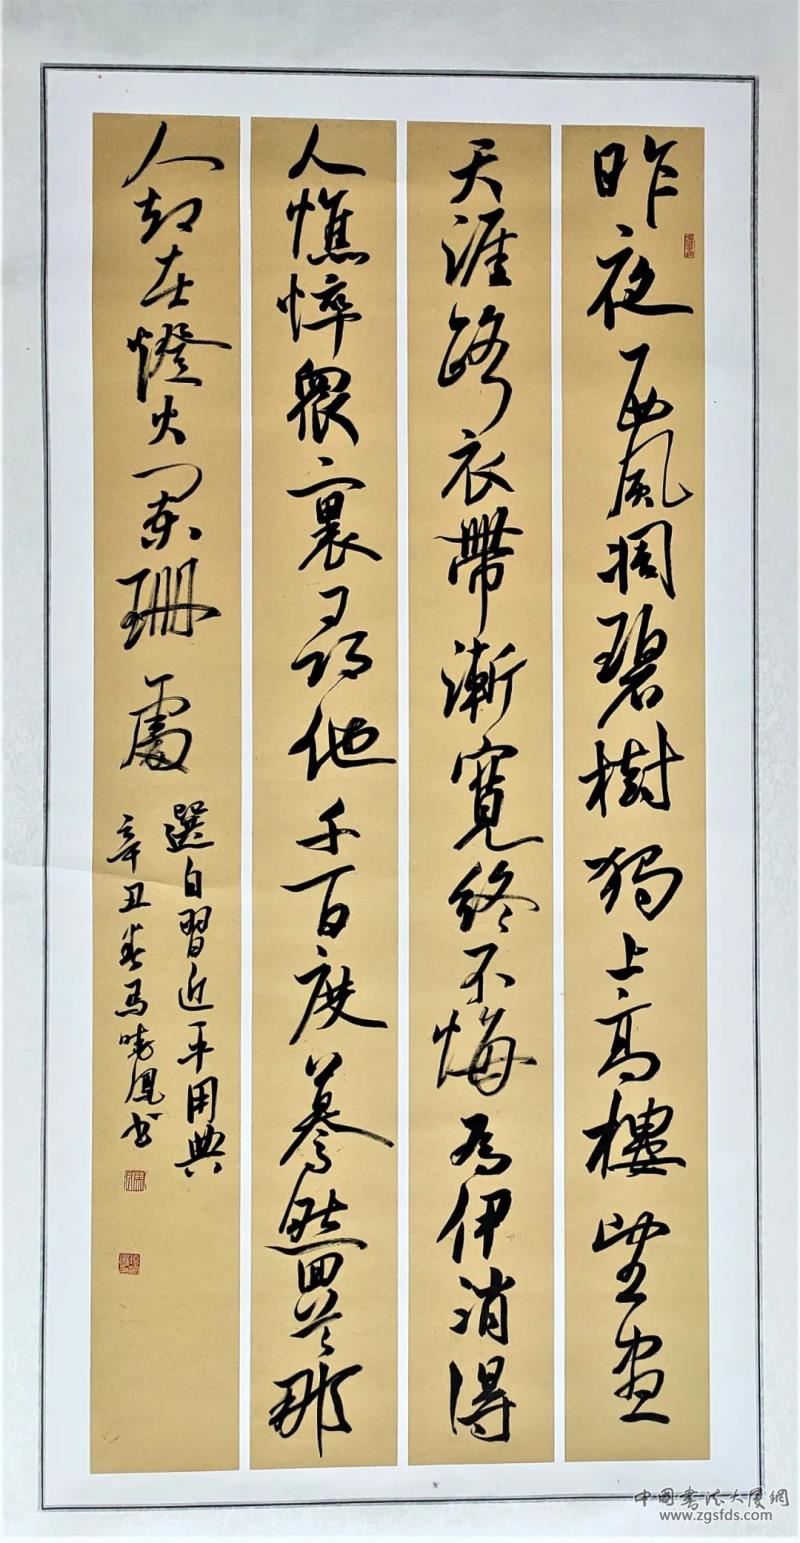 昨夜西風凋碧樹獨上高樓望盡
天涯路衣帶漸寬終不悔為伊消得
人憔悴眾裏尋他千百度驀然回首那
人却在燈火闌珊處
選自習近平用典
辛丑春馬曉鳳书
中国书法大厦網
www.zgsfds.com